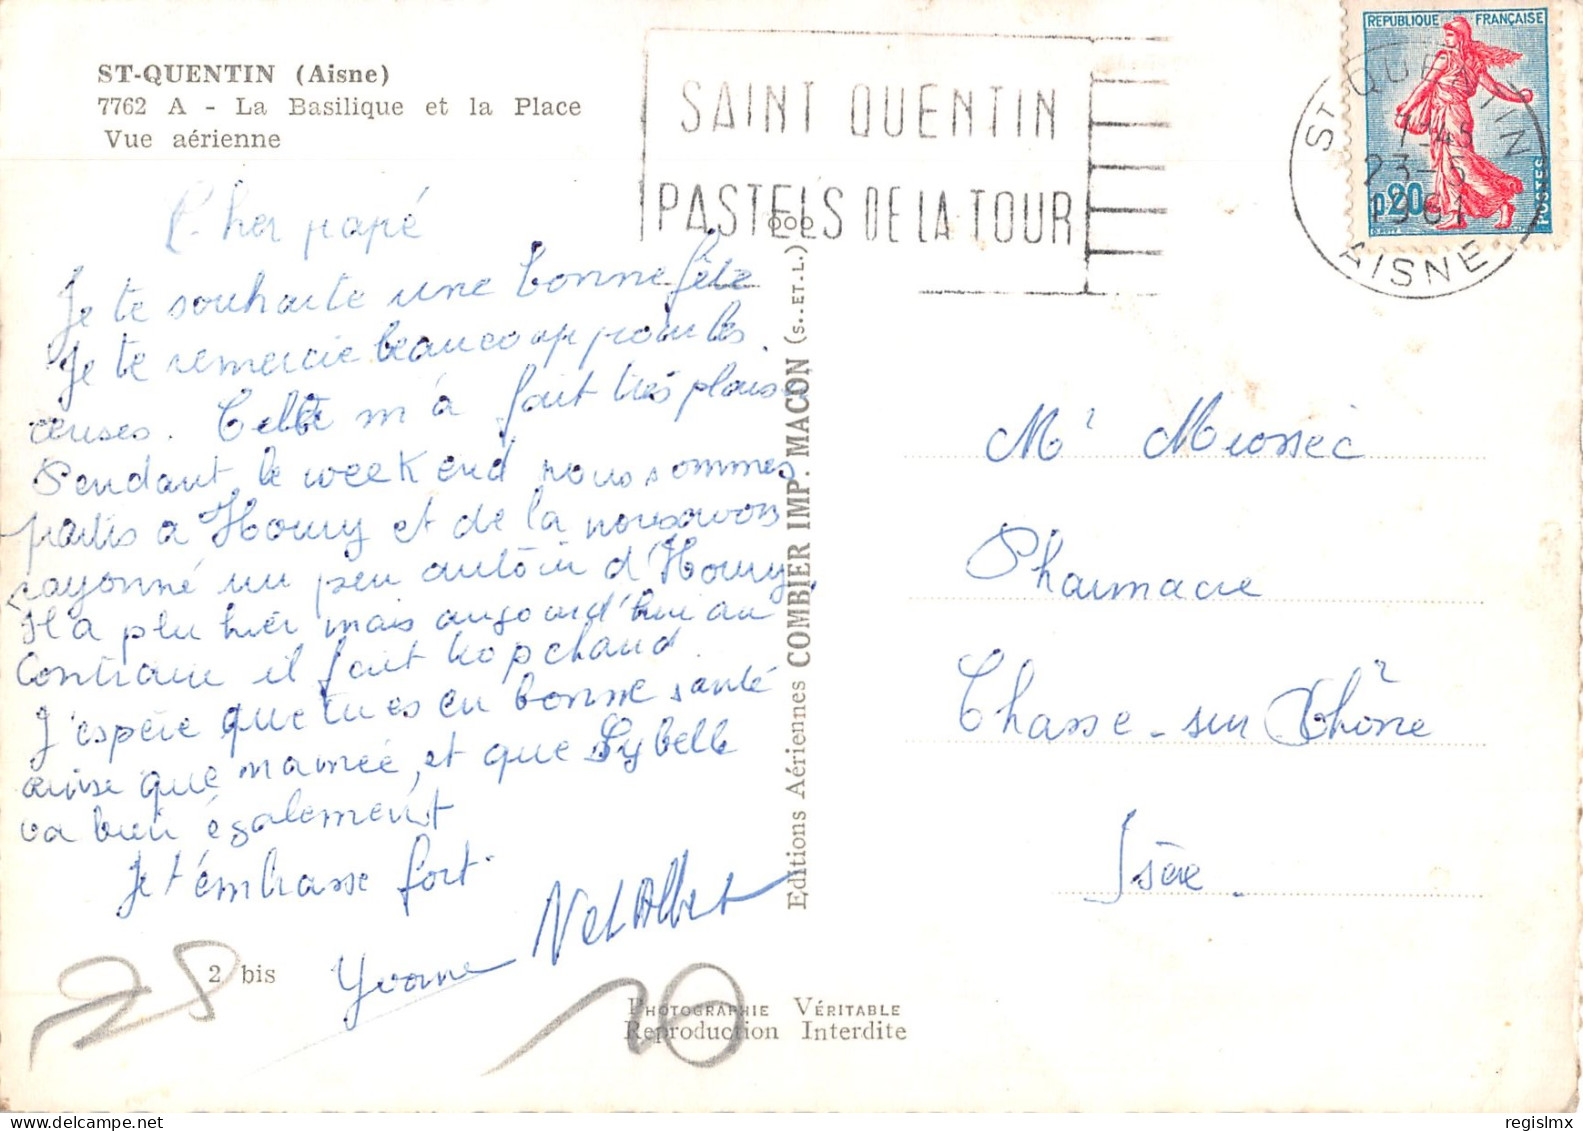 ST-QUENTIN (Aisne)
7762 A - La Basilique et la Place
Vue aérienne
Cher papé
Je te souhaite une bonne fête
Je te remercie beaucoup pour les
ceuses. Celte m'a fait très plaisi
Pendant le week end nous sommes
partis a Houry et de la nous avons
rayonné un peu autour d'Houry
Il a plu hier mais aujourd'hui au
Contraire il fait trop chaud.
J'espère que tu es en bonne santé
ainse que mamée, et que Sybelle
va bien également
Je t'embrasse fort.
Yvonne Net Albert
2 bis
28
10
Editions Aériennes COMBIER IMP. MACON (S.-ET-L.)
PHOTOGRAPHIE VÉRITABLE
Reproduction Interdite
SAINT QUENTIN
PASTELS DE LA TOUR
REPUBLIQUE FRANÇAISE
0,20
POSTES
ST QUENTIN
7-45
23-5
1961
AISNE
Mr Miossec
Pharmacie
Chasse-sur Rhône
Isère.
regislmx